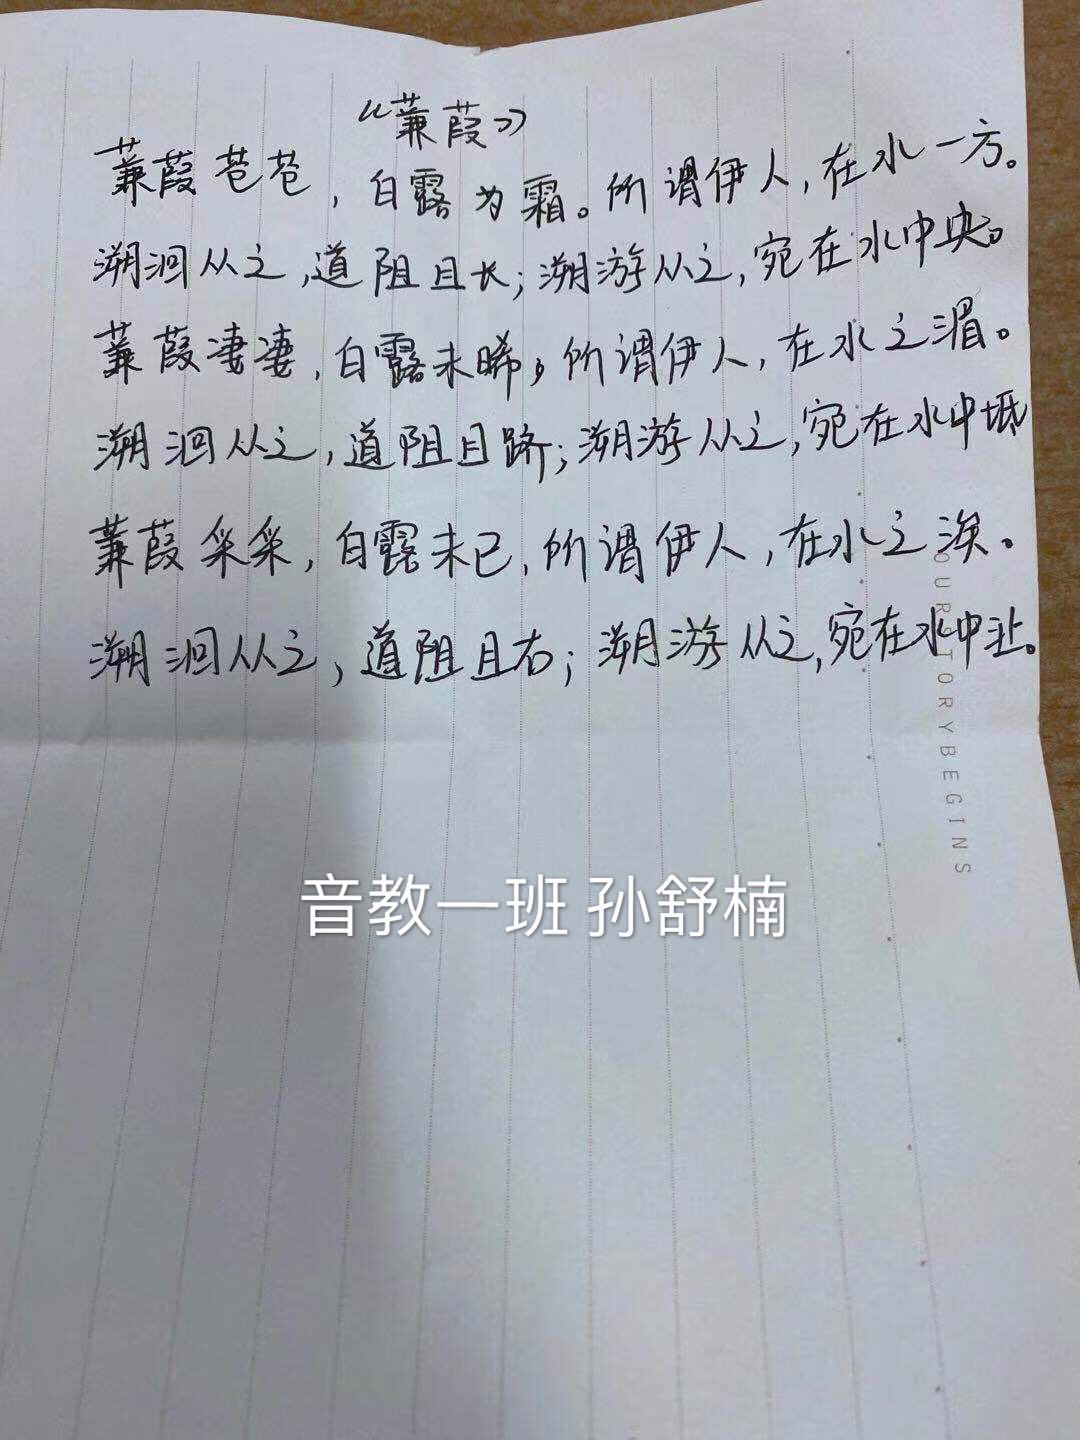 《蒹葭》
蒹葭苍苍，白露为霜。所谓伊人，在水一方。
溯洄从之，道阻且长；溯游从之，宛在水中央。
蒹葭凄凄，白露未晞，所谓伊人，在水之湄。
溯洄从之，道阻且跻；溯游从之，宛在水中坻
蒹葭采采，白露未已，所谓伊人，在水之涘。
溯洄从之，道阻且右；溯游从之，宛在水中沚。
OUR TORYBEGINS
音教一班 孙舒楠